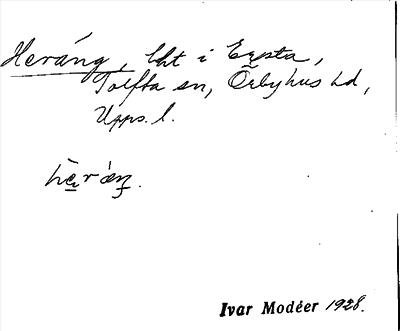 Heräng, lht i Ersta,
Tolfta sn, Örbyhus hd,
Upps. l.
Ivar Modéer 1928.